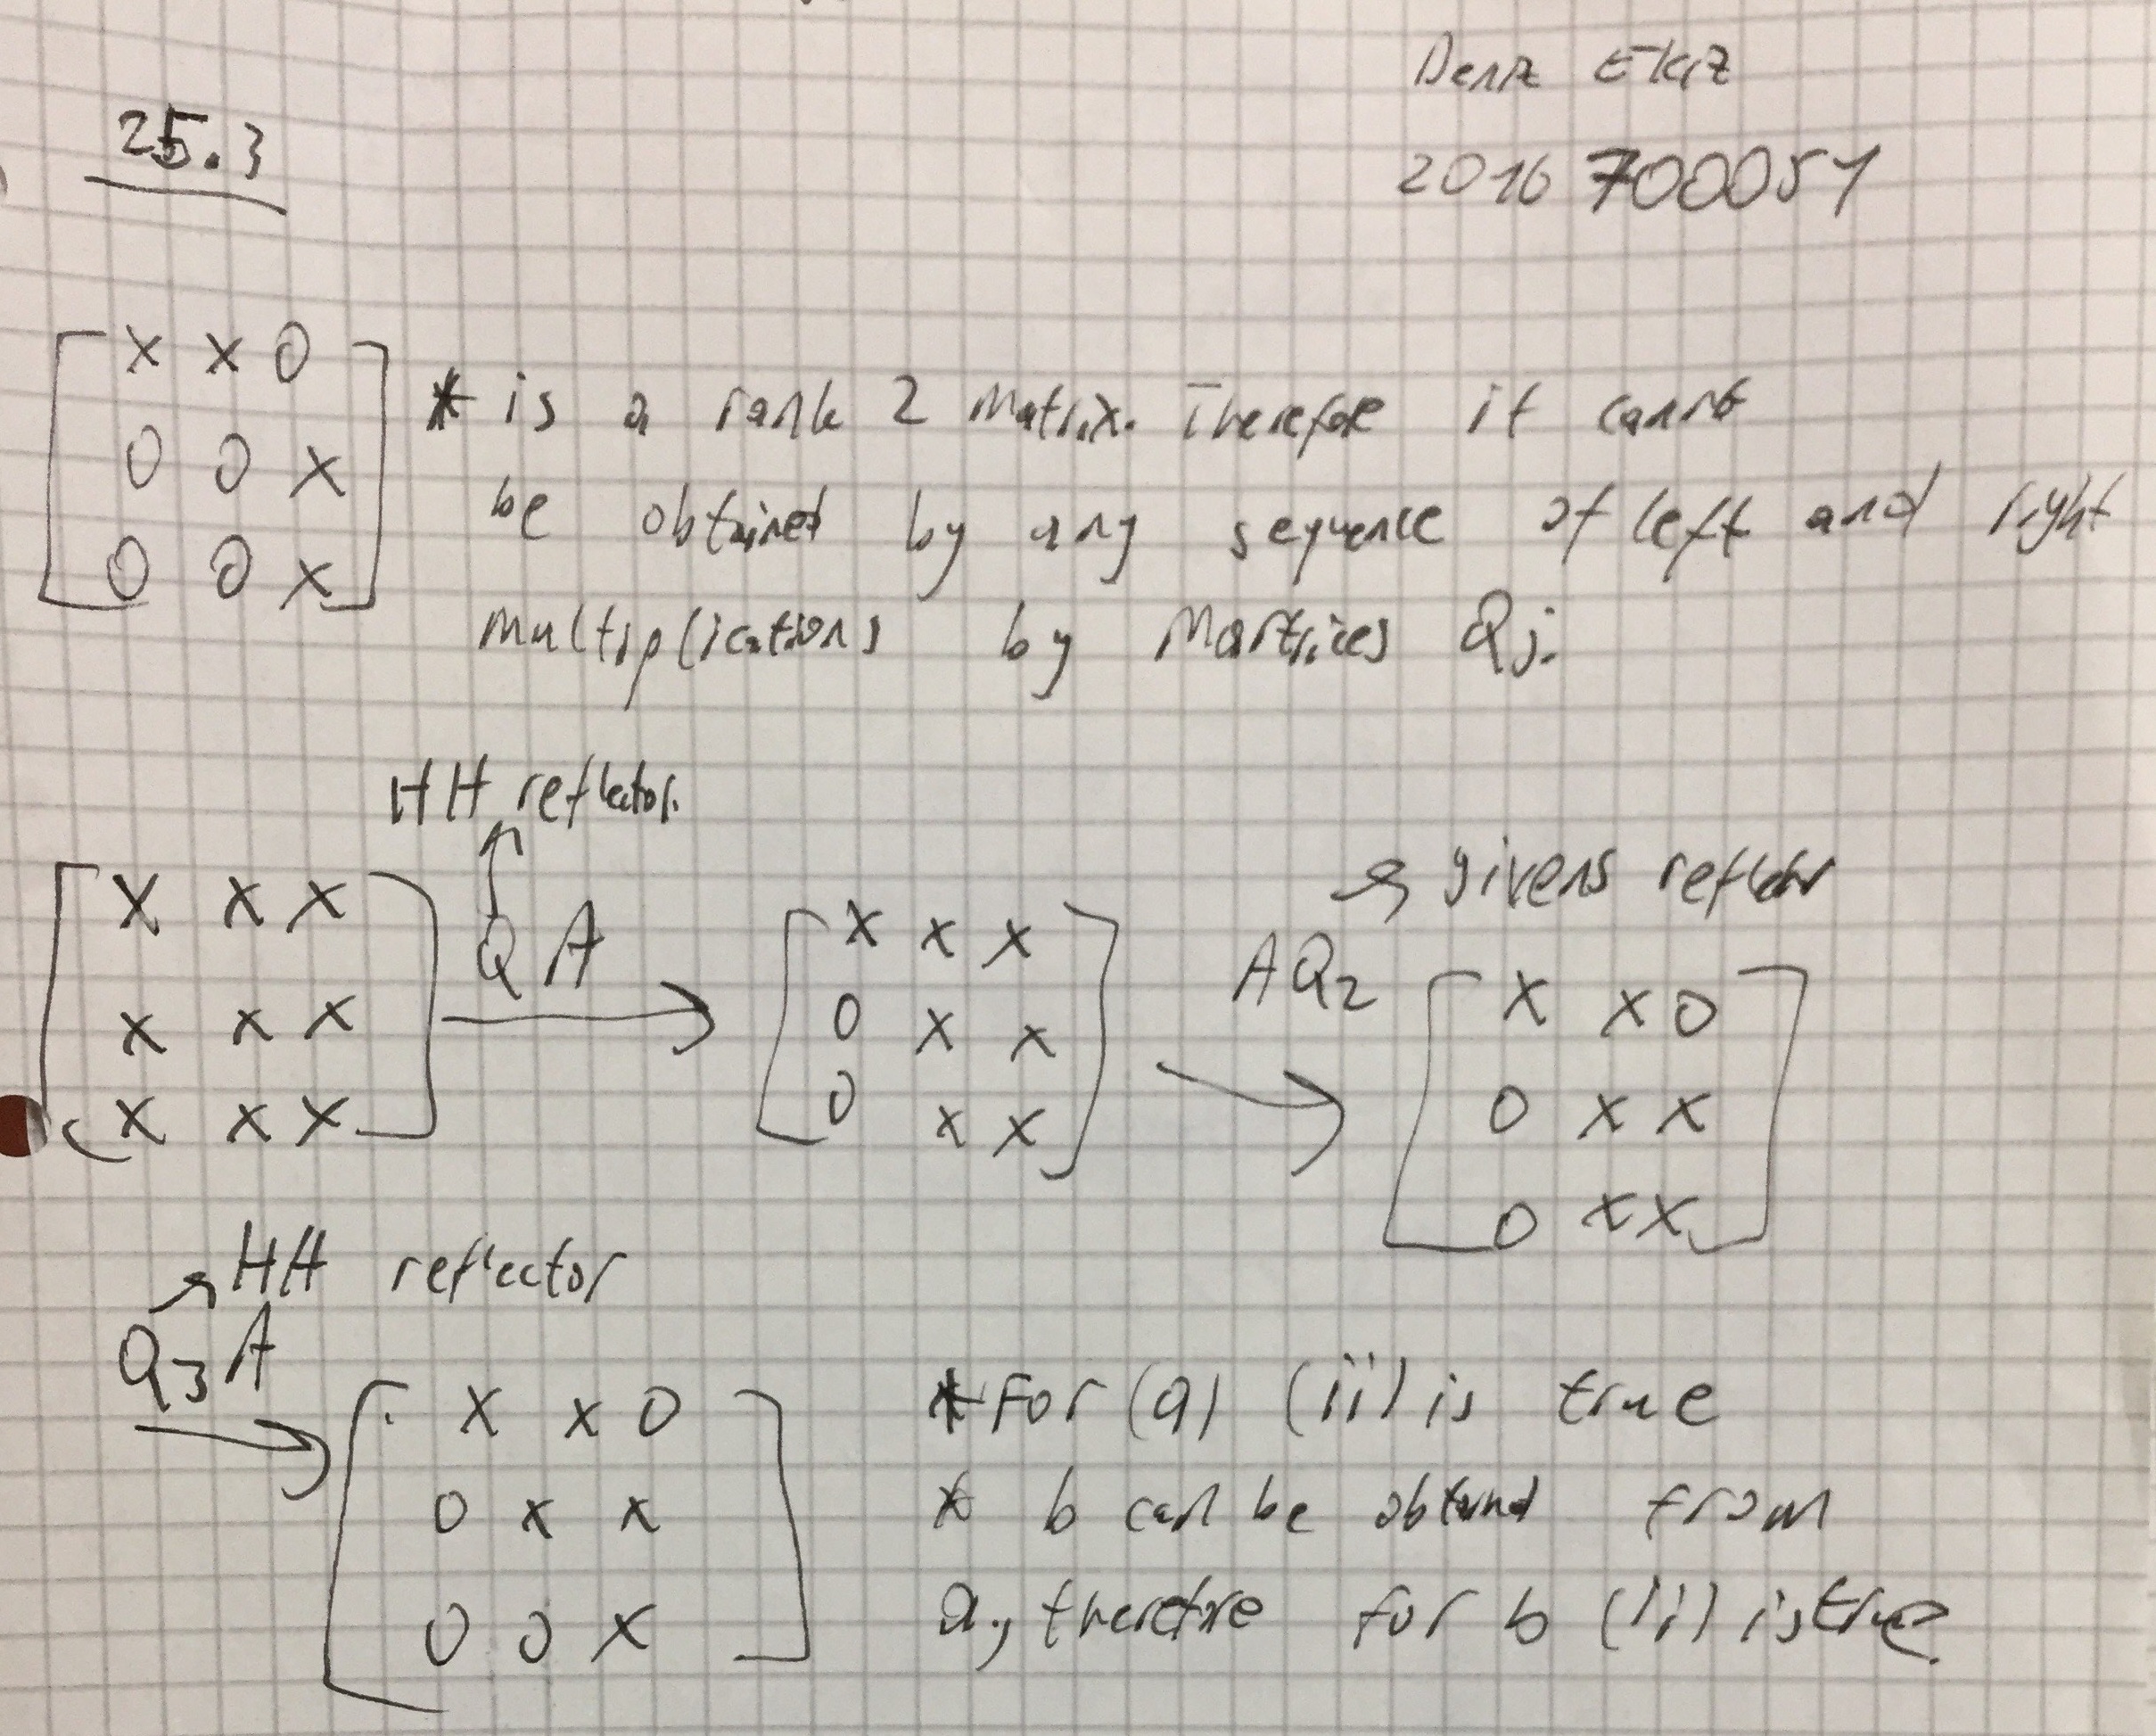 Deniz Ekiz
2016700051
25.3
x x 0
0 0 x
0 0 x
* is a rank 2 matrix. Therefore it cannot
be obtained by any sequence of left and right
multiplications by Martrices Qj.
HH reflector.
givens reflector
x x x
x x x
x x x
QA
x x x
0 x x
0 x x
AQ2
x x 0
0 x x
0 x x
HH reflector
Q3A
x x 0
0 x x
0 0 x
* For (a) (ii) is true
* b can be obtained from
a, therefore for b (ii) is true.